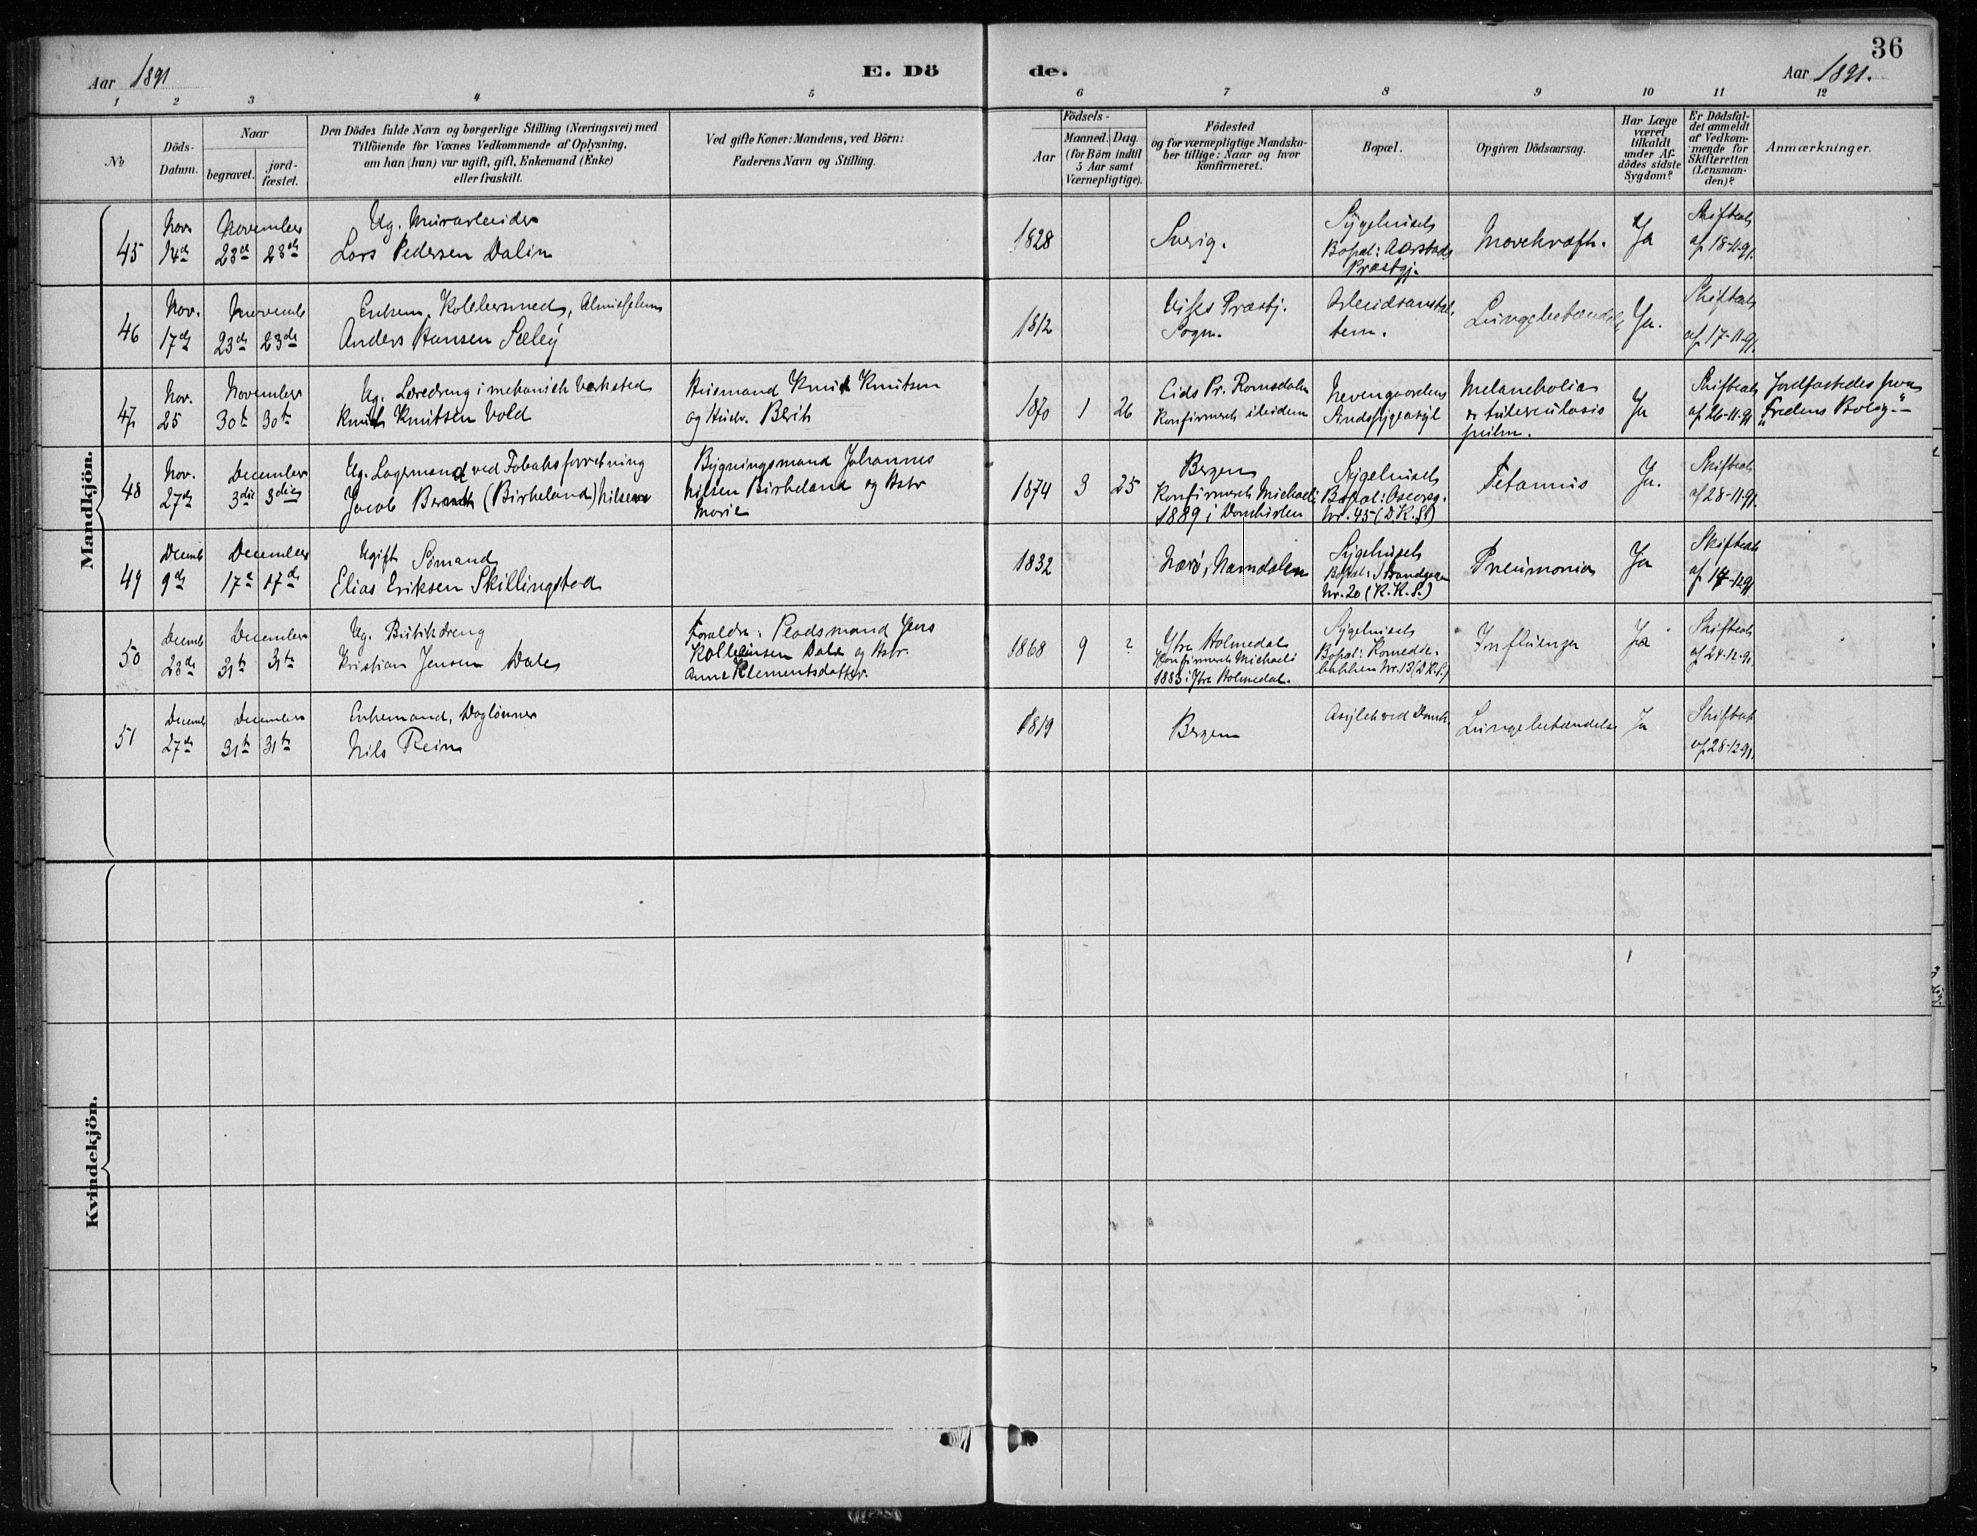 36
Aar 1891
E. Döde.
Aar 1891.
1 2 3 4 5 6 7 8 9 10 11 12
No
Döds-Datum.
Naar
begravet.
jordfæstet.
Den Dödes fulde Navn og borgerlige Stilling (Næringsvei) med
Tilföiende for Voxnes Vedkommende af Oplysning,
om han (hun) var ugift, gift, Enkemand (Enke)
eller fraskilt.
Ved gifte Koner: Mandens, ved Börn:
Faderens Navn og Stilling.
Födsels-
Aar
Maaned. Dag.
(for Börn indtil
5 Aar samt
Værnepligtige).
Födested
og for værnepligtige Mandskaber tillige: Naar og hvor
konfirmeret.
Bopæl.
Opgiven Dödsaarsag.
Har Læge
været
tilkaldt
under Afdödes sidste
Sygdom?
Er Dödsfaldet anmeldt
af Vedkommende for
Skifteretten
(Lensmanden)?
Anmærkninger.
Mandkjön.
45
Nov. 14de
November 23de 23de
Ug. Murarbeider
Lars Pedersen Dalin
1828
Sverig.
Sygehuset
Bopæl: Aarstads
Præstgj.
Marekræft.
Ja
Skifteatt.
af 18-11-91.
46
Nov. 17de
Novemb 23de 23de
Enkem. Kobbersmed, Almisselem
Anders Hansen Sæley
1812
Præstj.
Sogn.
Arbeidsanstalten.
Lungebetændelse
Ja.
Skifteatt.
af 17-11-91.
47
Nov. 25
November 30te 30te
Ug. Læredreng i mekanisk Værksted
Knut Knutsen Vold
Husmand Knut Knutsen
og Hustr. Berit
1870 1 26
Eids Pr. Romsdalen
Konfirmeret itiden
Nevengaardens
Sindssygeasyl
Melancholia
et tuberculosis
pulm.
Ja
Skifteatt.
af 26-11-91
Jordfæstedes fra
"Fredens Bolig"
48
Nov. 27de
December 3die 3die
Ug. Lagermand ved Tobaksforretning
Jacob Berent (Birkeland) Nilsen
Bygningsmand Johannes
Nilsen Birkeland og Hstr
Marie
1874 3 25
Bergen
Konfirmert Michaeli
1889 i Domkirken
Sygehuset
Bopæl:
Nr. 45 (D.K.S.)
Tetanus
Ja.
Skifteatt.
af 28-11-91.
49
Decemb 9de
December 17de 17de
Ugift Sømand
Elias Eriksen Skillingstad
1832
Nærø, Namdalen
Sygehuset
Bopæl: Strandgaden
Nr. 20 (K.K.S.)
Pneumonia
Ja
Skifteatt.
af 14-12-91
50
Decemb 23de
December 31te 31te
Ug. Butikdreng
Kristian Jensen Dale
Forældre: Pladsmand Jens
Dale og Hstr.
Anne Klementsdatter.
1868 9 ?
Ytre Holmedal
Konfirmeret Michaeli
1883 i Ytre Holmedal.
Sygehuset
Bopæl:
bakken Nr. 13 (D.K.S.)
Influenza
Ja
Skifteatt.
af 24-12-91
51
Decemb 27de
December 31te 31te
Enkemand, Daglønner
Nils Rein
1819
Bergen
Asylet ved Domk.
Lungebetændelse
Ja
Skifteatt.
af 28-12-91.
Kvindekjön.